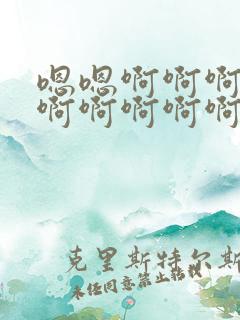 嗯嗯啊啊啊
啊啊啊啊啊
克里斯特尔斯
未经同意禁止转载